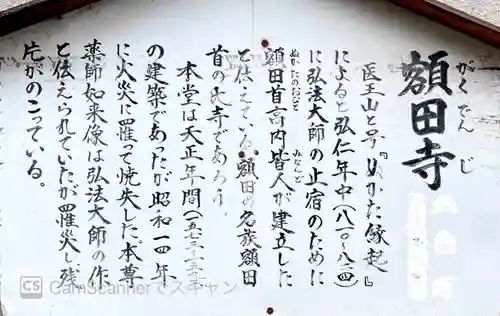 額田寺
がくでんじ
医王山と号『ぬかた縁起』
によると弘仁年中(八一〇~八二四)
に弘法大師の止宿のために
額田首高内皆人が建立した
ぬかたのおびと
みなんど
と伝えている。額田の名族額田
首の氏寺であろう。
本堂は天正年間(一五七三~一五九二)
の建築であったが昭和一四年
に火災に罹って焼失した。本尊
薬師如来像は弘法大師の作
と伝えられていたが罹災し残
片がのこっている。
CS CamScannerでスキャン